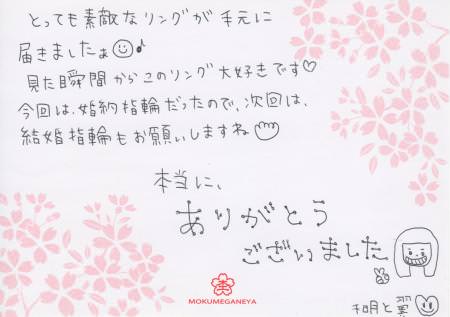 とっても素敵なリングが手元に
届きましたぁ♪
見た瞬間からこのリング大好きです♡
今回は、婚約指輪だったので、次回は、
結婚指輪もお願いしますね
本当に、
ありがとう
ございました
MOKUMEGANEYA
和明と翼